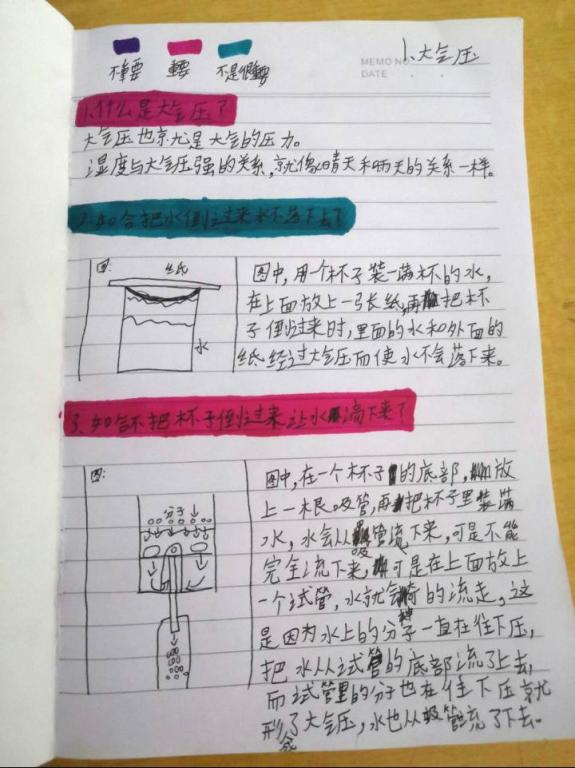 1、大气压
MEMO NO.
DATE
不重要 重要 不是很重要
1、什么是大气压？
大气压也就是大气的压力。
湿度与大气压强的关系，就像晴天和雨天的关系一样。
2、如何把水倒过来水不落下去？
图：
纸
水
图中，用一个杯子装一满杯的水，
在上面放上一张纸，再把杯
子倒过来时，里面的水和外面的
纸经过大气压而使水不会落下来。
3、如何不把杯子倒过来让水滴下来？
图：
分子
图中，在一个杯子的底部，放
上一根吸管，再把杯子里装满
水，水会从吸管流下来，可是不能
完全流下来，可是在上面放上
一个试管，水就会 的流走，这
是因为水上的分子一直在往下压，
把水从试管的底部流了上去，
而试管里的分子也在往下压就
形成了大气压，水也从吸管流了下去。